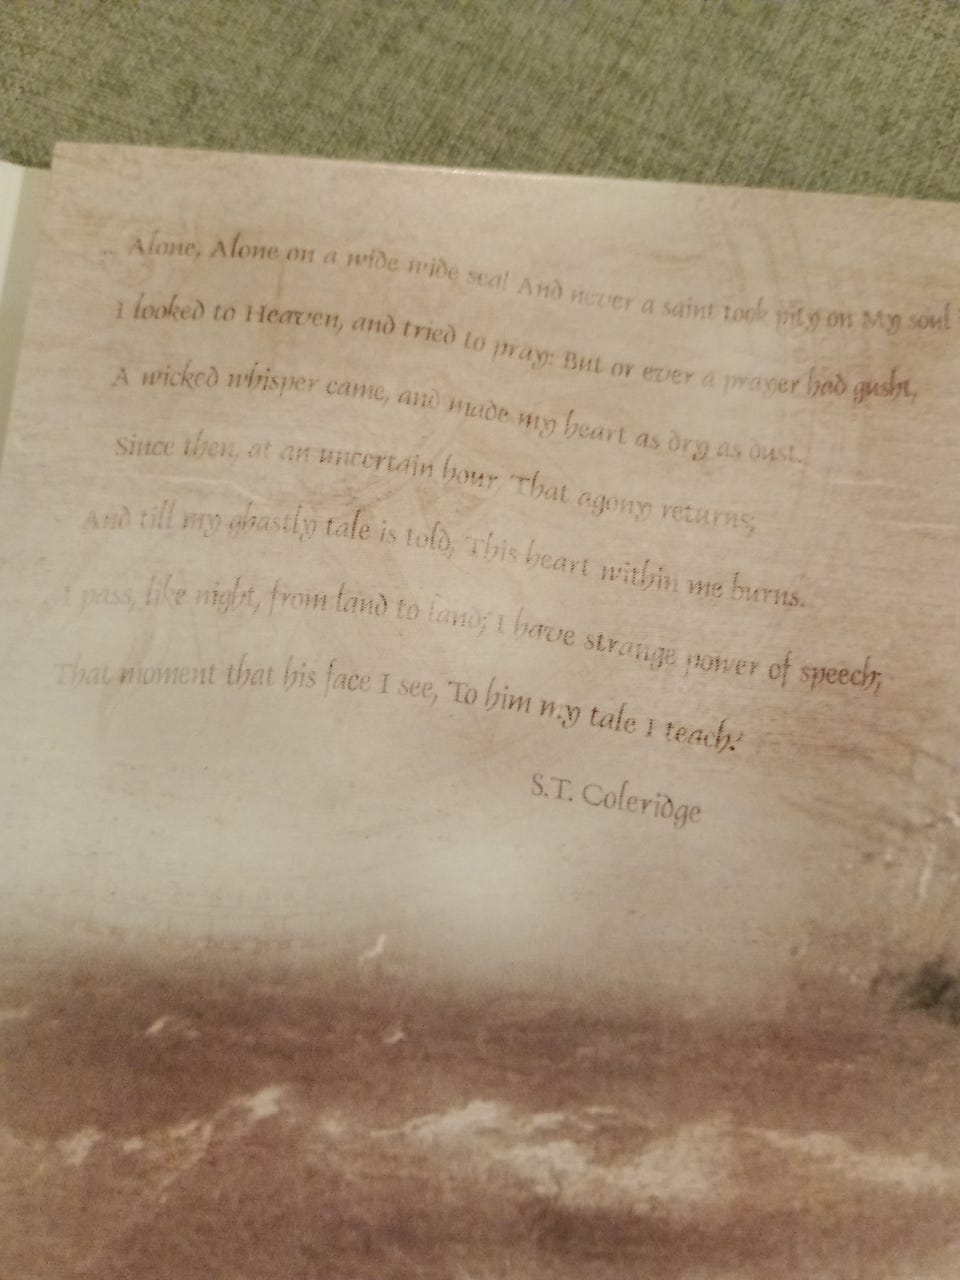 ... Alone, Alone on a wide wide sea! And never a saint took pity on My soul
I looked to Heaven, and tried to pray: But or ever a prayer had gusht,
A wicked whisper came, and made my heart as dry as dust.
Since then, at an uncertain hour, That agony returns;
And till my ghastly tale is told, This heart within me burns.
I pass, like night, from land to land; I have strange power of speech;
That moment that his face I see, To him my tale I teach.'
S.T. Coleridge